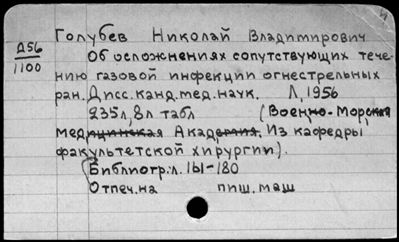 Голубев Николай Владимирович
Д56
1100
Об осложнениях сопутствующих тече-
нию газовой инфекции огнестрельных
ран. Дисс. канд. мед. наук. Л, 1956
235л, 8л табл (Военно-Морская
медицинская Академия. Из кафедры
факультетской хирургии).
Библиогр: л. 161-180
Отпеч. на пиш. маш